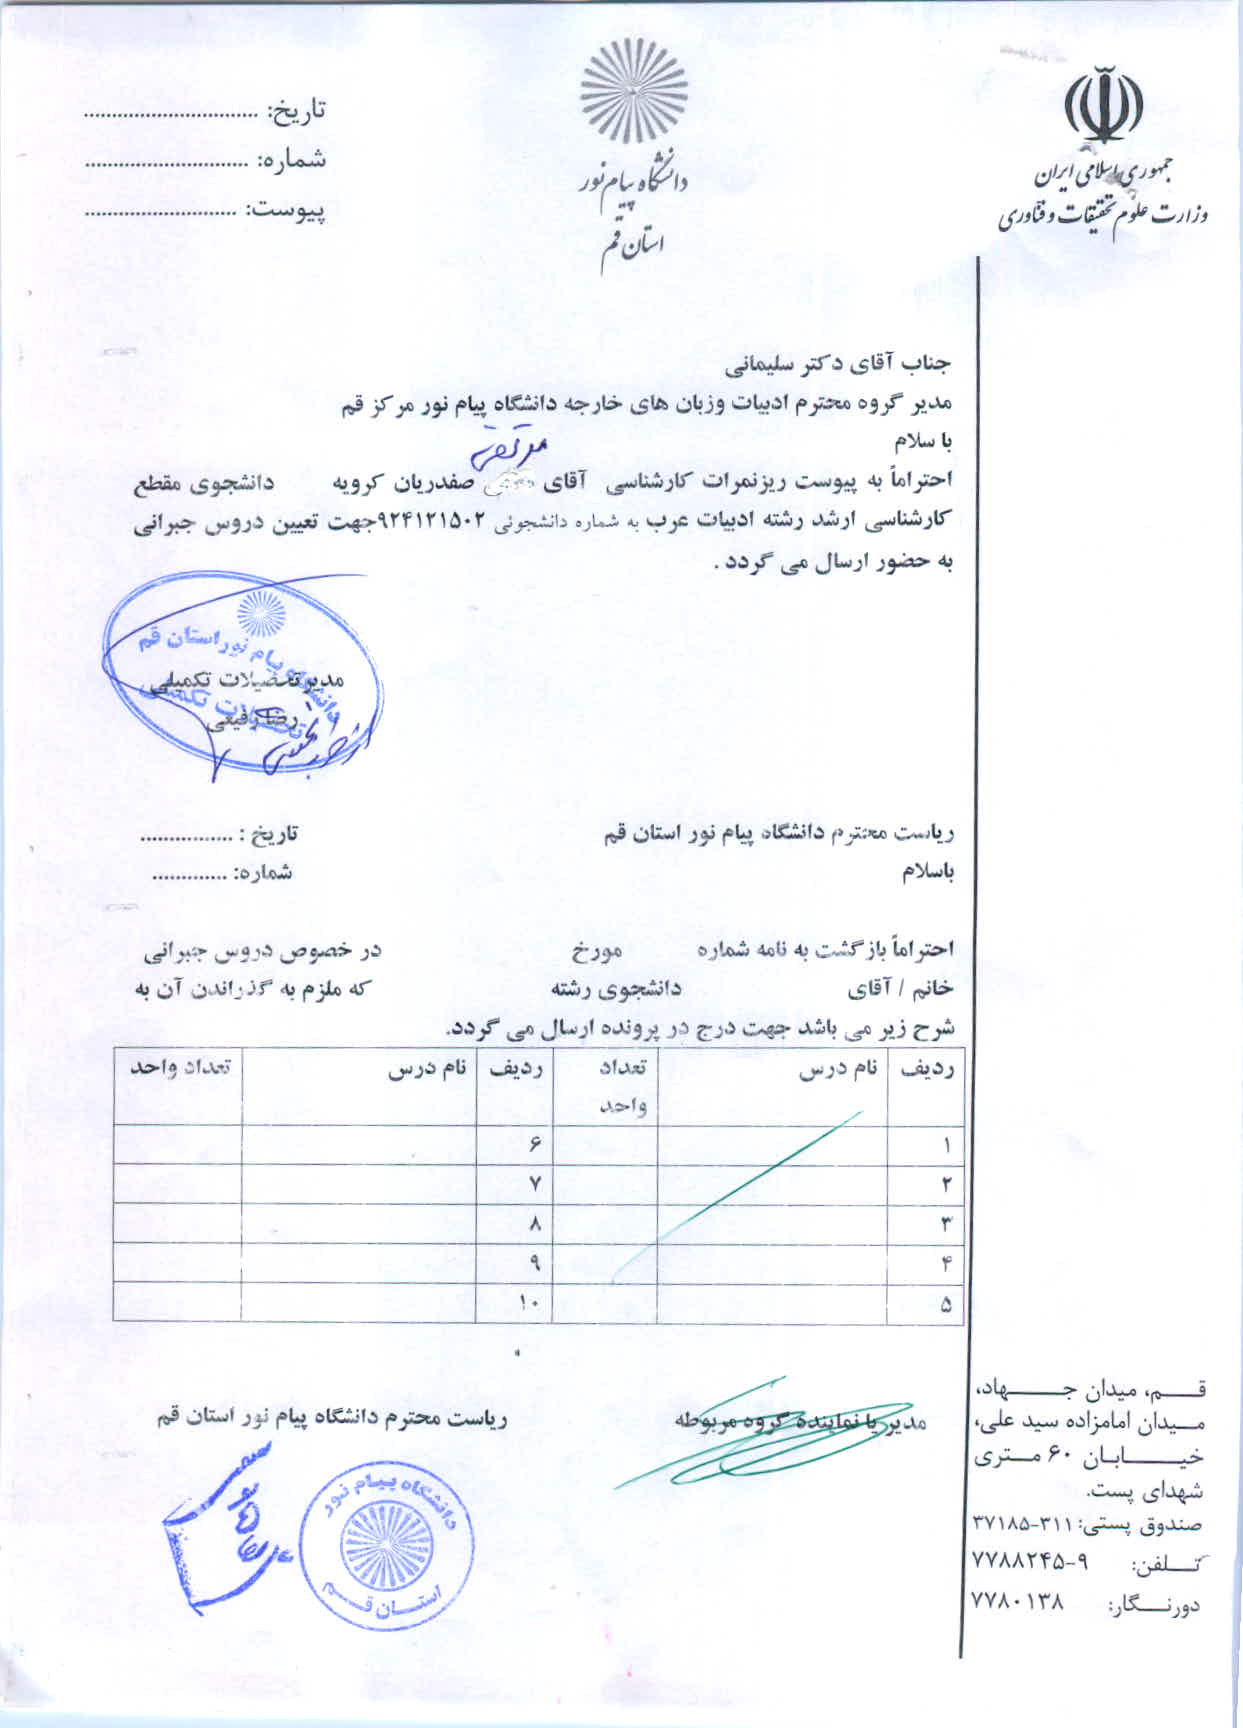 جمهوری اسلامی ایران
وزارت علوم تحقیقات و فناوری
دانشگاه پیام نور
استان قم
تاریخ: ................................
شماره: ..............................
پیوست: ............................
جناب آقای دکتر سلیمانی
مدیر گروه محترم ادبیات وزبان های خارجه دانشگاه پیام نور مرکز قم
با سلام
مرتضی
احتراماً به پیوست ریزنمرات کارشناسی آقای صفدریان کرویه دانشجوی مقطع
کارشناسی ارشد رشته ادبیات عرب به شماره دانشجوئی ۹۲۴۱۲۱۵۰۲جهت تعیین دروس جبرانی
به حضور ارسال می گردد .
دانشگاه پیام نور استان قم
تحصیلات تکمیلی
مدیر تحصیلات تکمیلی
رضا رفیعی
ریاست محترم دانشگاه پیام نور استان قم
تاریخ : ................
باسلام
شماره: .............
احتراماً بازگشت به نامه شماره مورخ در خصوص دروس جبرانی
خانم / آقای دانشجوی رشته که ملزم به گذراندن آن به
شرح زیر می باشد جهت درج در پرونده ارسال می گردد.
ردیف نام درس تعداد واحد ردیف نام درس تعداد واحد
۱ ۶
۲ ۷
۳ ۸
۴ ۹
۵ ۱۰
مدیر یا نماینده گروه مربوطه
ریاست محترم دانشگاه پیام نور استان قم
دانشگاه پیام نور
استان قم
قم، میدان جهاد،
میدان امامزاده سید علی،
خیابان ۶۰ متری
شهدای پست.
صندوق پستی: ۳۱۱-۳۷۱۸۵
تلفن: ۹-۷۷۸۸۲۴۵
دورنگار: ۷۷۸۰۱۳۸